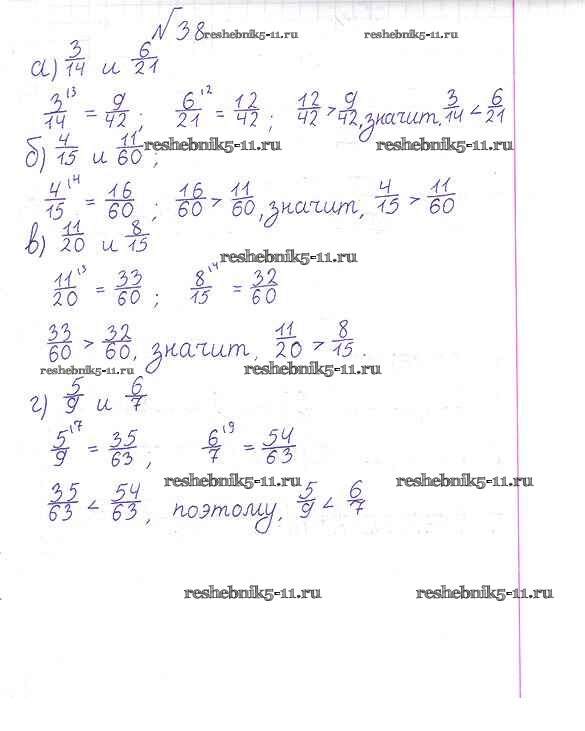 №38 reshebnik5-11.ru reshebnik5-11.ru
а) 3/14 и 6/21
3^\3/14 = 9/42; 6^\2/21 = 12/42; 12/42 > 9/42, значит, 3/14 < 6/21
б) 4/15 и 11/60; reshebnik5-11.ru reshebnik5-11.ru
4^\4/15 = 16/60; 16/60 > 11/60, значит, 4/15 > 11/60
в) 11/20 и 8/15 reshebnik5-11.ru
11^\3/20 = 33/60; 8^\4/15 = 32/60
33/60 > 32/60, значит, 11/20 > 8/15.
reshebnik5-11.ru reshebnik5-11.ru
г) 5/9 и 6/7
5^\7/9 = 35/63; 6^\9/7 = 54/63
reshebnik5-11.ru reshebnik5-11.ru
35/63 < 54/63, поэтому, 5/9 < 6/7
reshebnik5-11.ru reshebnik5-11.ru